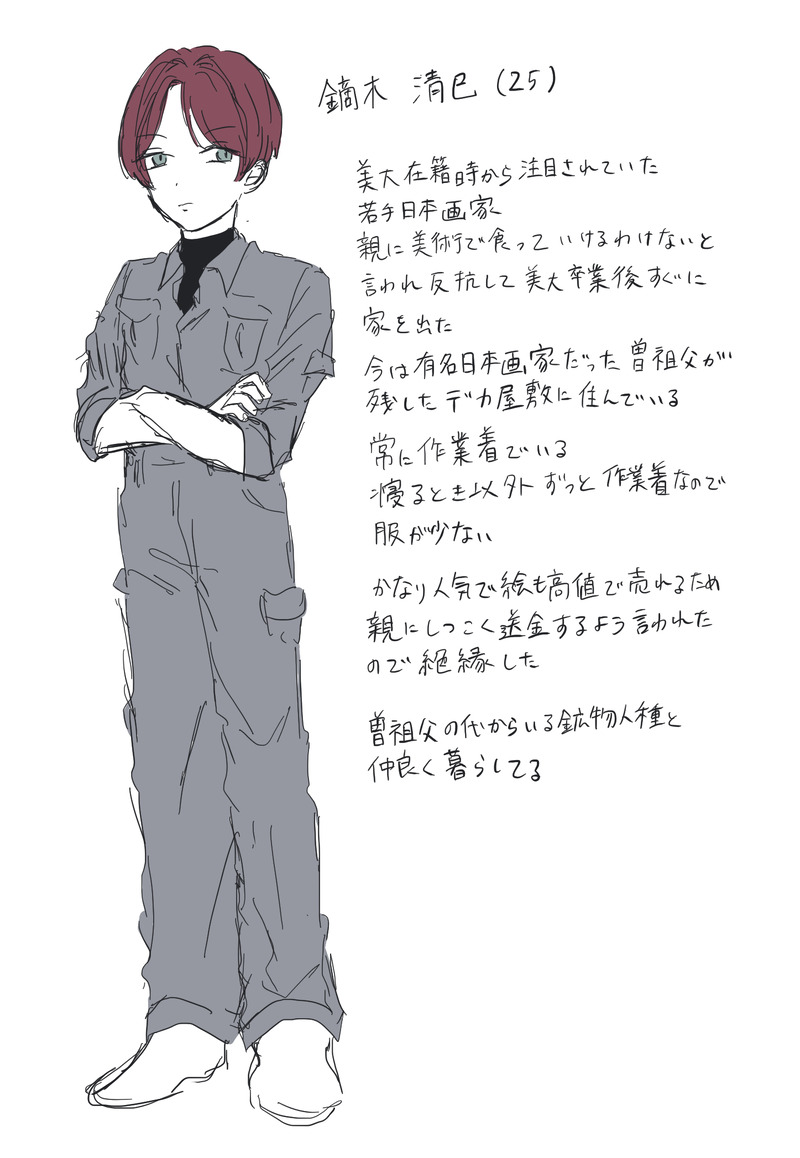 鏑木 清巳（25）
美大在籍時から注目されていた
若手日本画家
親に美術で食って いけるわけないと
言われ反抗して美大卒業後すぐに
家を出た
今は有名日本画家だった曽祖父が
残したデカ屋敷に住んでいる
常に作業着でいる
寝るとき以外ずっと作業着なので
服が少ない
かなり人気で絵も高値で売れるため
親にしつこく送金するよう言われた
ので絶縁した
曽祖父の代からいる鉱物人種と
仲良く暮らしてる